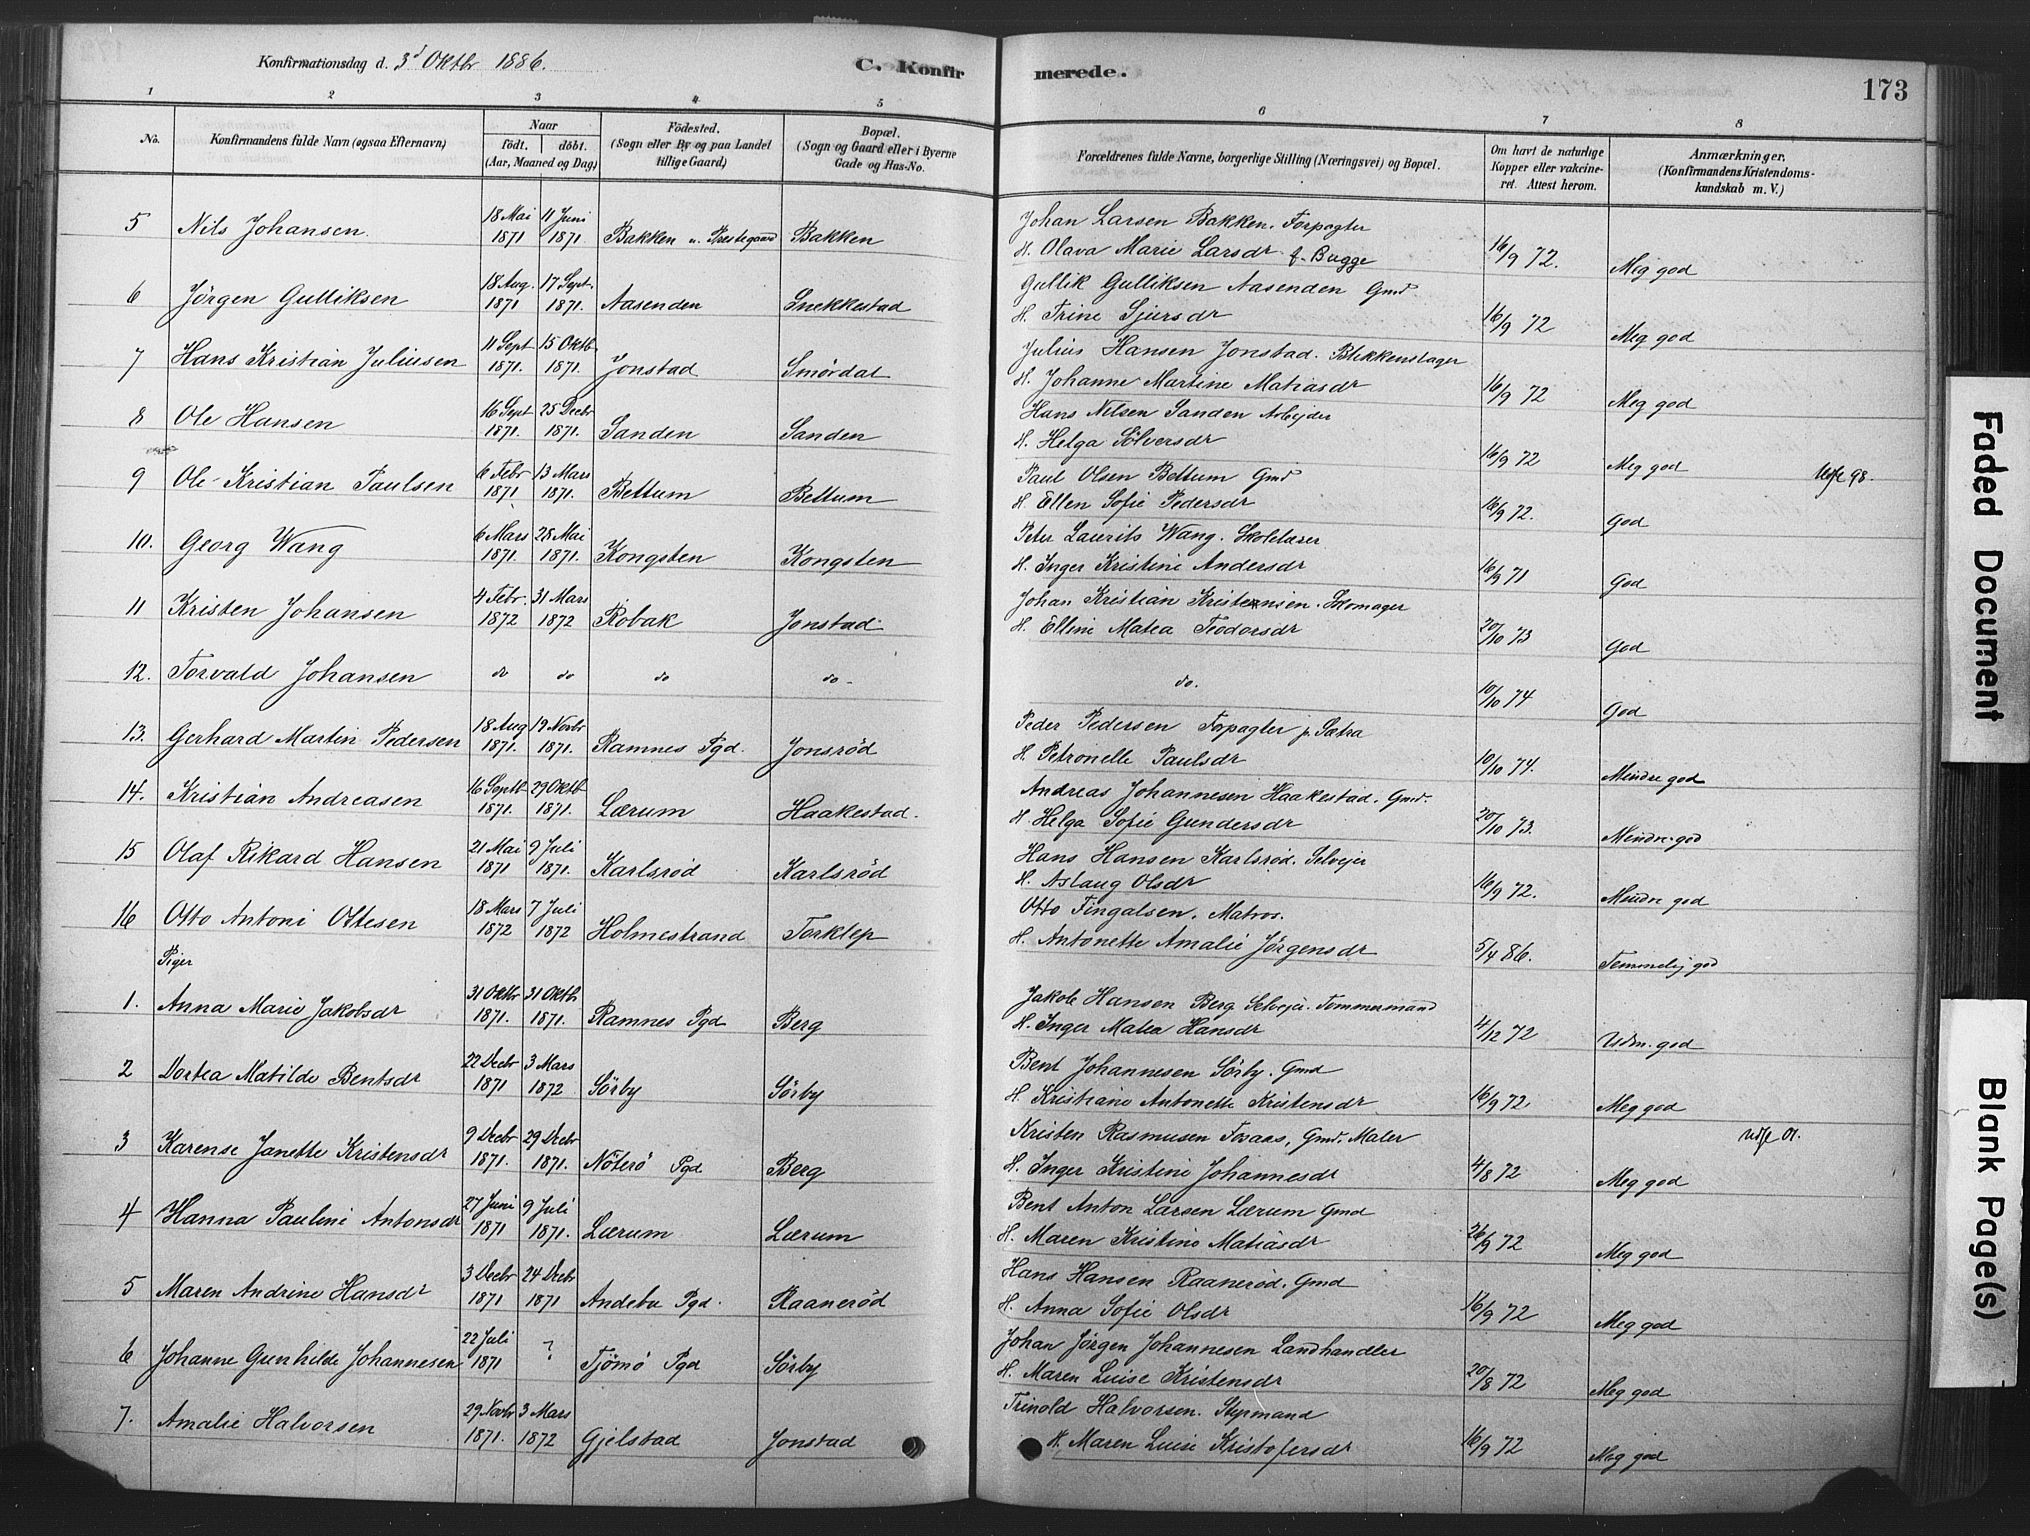 Konfirmationsdag d. 3d Oktbr 1886.
C. Konfirmerede.
173
1 2 3 4 5 6 7 8
No. Konfirmandens fulde Navn (ogsaa Efternavn) Naar født. døbt. (Aar, Maaned og Dag) Fødested. (Sogn eller By og paa Landet tillige Gaard) Bopæl. (Sogn og Gaard eller i Byerne Gade og Hus-No. Forældrenes fulde Navne, borgerlige Stilling (Næringsvei) og Bopæl. Om havt de naturlige Kopper eller vakcineret. Attest herom. Anmærkninger. (Konfirmandens Kristendomskundskab m. V.)
5 Nils Johansen. 18 Mai 1871 11 Juni 1871. Bakken u. Prestegaard Bakken Johan Larsen Bakken. Forpagter
H. Olava Marie Larsdr f. Bugge 16/9 72. Meg god
6 Jörgen Gulliksen 18 Aug. 1871 17 Sept. 1871. Aasenden Snekkestad Gullik Gulliksen Aasenden Gmd
H. Trine Sjursdr 16/9 72 Meg god
7 Hans Kristian Juliusen 11 Sept 1871. 15 Oktb 1871. Jonstad Smördal Julius Hansen Jonstad. Blikkenslager
H. Johanne Martine Matiasdr 16/9 72 Meg god
8 Ole Hansen 16 Sept 1871. 25 Decbr 1871. Sanden Sanden Hans Nilsen Sanden Arbejder
H. Helga Sölversdr 16/9 72 Meg god
9 Ole Kristian Paulsen 6 Febr 1871 13 Mars 1871. Bettum Bettum Paul Olsen Bettum Gmd
H. Ellen Sofie Pedersdr 16/9 72. God 98.
10. Georg Wang 6 Mars 1871. 28 Mai 1871. Kongsten Kongsten Peter Laurits Wang. Skolelærer
H. Inger Kristine Andersdr 16/9 71 God
11 Kristen Johansen 4 Febr. 1872 31 Mars 1872 Robak Jonstad Johan Kristian Kristensen. Skomager
H. Elline Matea Teodorsdr 20/10 73 God
12. Torvald Johansen do do do do do. 10/10 74 God
13. Gerhard Martin Pedersen 18 Aug 1871. 19 Novbr 1871. Ramnes Pgd. Jonsröd Peder Pedersen Forpagter p. Sætra
H. Petronelle Paulsdr 10/10 74. Mindre god
14. Kristian Andreasen 16 Septb 1871. 29 Oktb 1871. Lærum Haakestad. Andreas Johannesen Haakestad. Gmd.
H Helga Sofie Gundersdr 20/10 73. Mindre god
15 Olaf Rikard Hansen 21 Mai 1871 9 Juli 1871. Karlsröd Karlsröd Hans Hansen Karlsröd. Selvejer
H. Aslaug Olsdr 16/9 72. Mindre god
16 Otto Antoni Ottesen 18 Mars 1872 7 Juli 1872 Holmestrand Torklep Otto Fingalsen. Matros.
H. Antonette Amalie Jörgensdr 5/4 86. Temmelig god
Piger
1. Anna Marie Jakobsdr 31 Oktbr 1871. 31 Oktbr 1871. Ramnes Pgd Berg Jakob Hansen Berg Selvejer. Tømmermand
H. Inger Matea Hansdr 4/12 72 Udm. god
2 Dortea Matilde Bentsdr 22 Decbr 1871 3 Mars 1872 Sörby Sörby Bent Johannesen Sörby. Gmd
H. Kristiane Antonette Kristensdr 16/9 72. Meg god
3 Karense Janette Kristensdr 9 Decbr 1871. 29 Decbr 1871. Nöterö Pgd Berg Kristen Rasmusen Foraas, Gmd. Maler
H. Inger Kristine Johannesdr 4/8 72 Meg god 01.
4 Hanna Pauline Antonsdr 27 Juni 1871 9 Juli 1871. Lærum Lærum Bent Anton Larsen Lærum Gmd
H. Maren Kristine Matiasdr 26/9 72 Meg god
5 Maren Andrine Hansdr 3 Decbr 1871 24 Decbr 1871 Andebu Pgd. Raaneröd Hans Hansen Raaneröd. Gmd
H. Anna Sofie Olsdr 16/9 72 Meg god
6 Johanne Gunhilde Johannesen 22 Juli 1871 ? Tjömö Pgd Sörby Johan Jörgen Johannesen Landhandler
H. Maren Luise Kristensdr 20/8 72 Meg god
7. Amalie Halvorsen 29 Novbr 1871. 3 Mars 1872 Gjelstad Jonstad Trinold Halvorsen. Styrmand
H. Maren Luise Kristofersdr 16/9 72 Meg god
Faded Document
Blank Page(s)